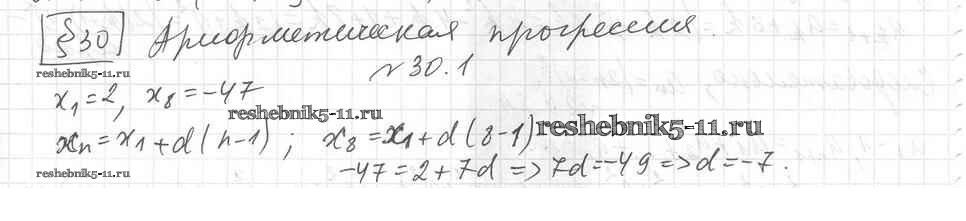 §30 Арифметическая прогрессия.
№30.1
reshebnik5-11.ru
x₁=2, x₈=-47
reshebnik5-11.ru
xₙ=x₁+d(n-1); x₈=x₁+d(8-1)
reshebnik5-11.ru
-47=2+7d => 7d=-49 => d=-7.
reshebnik5-11.ru